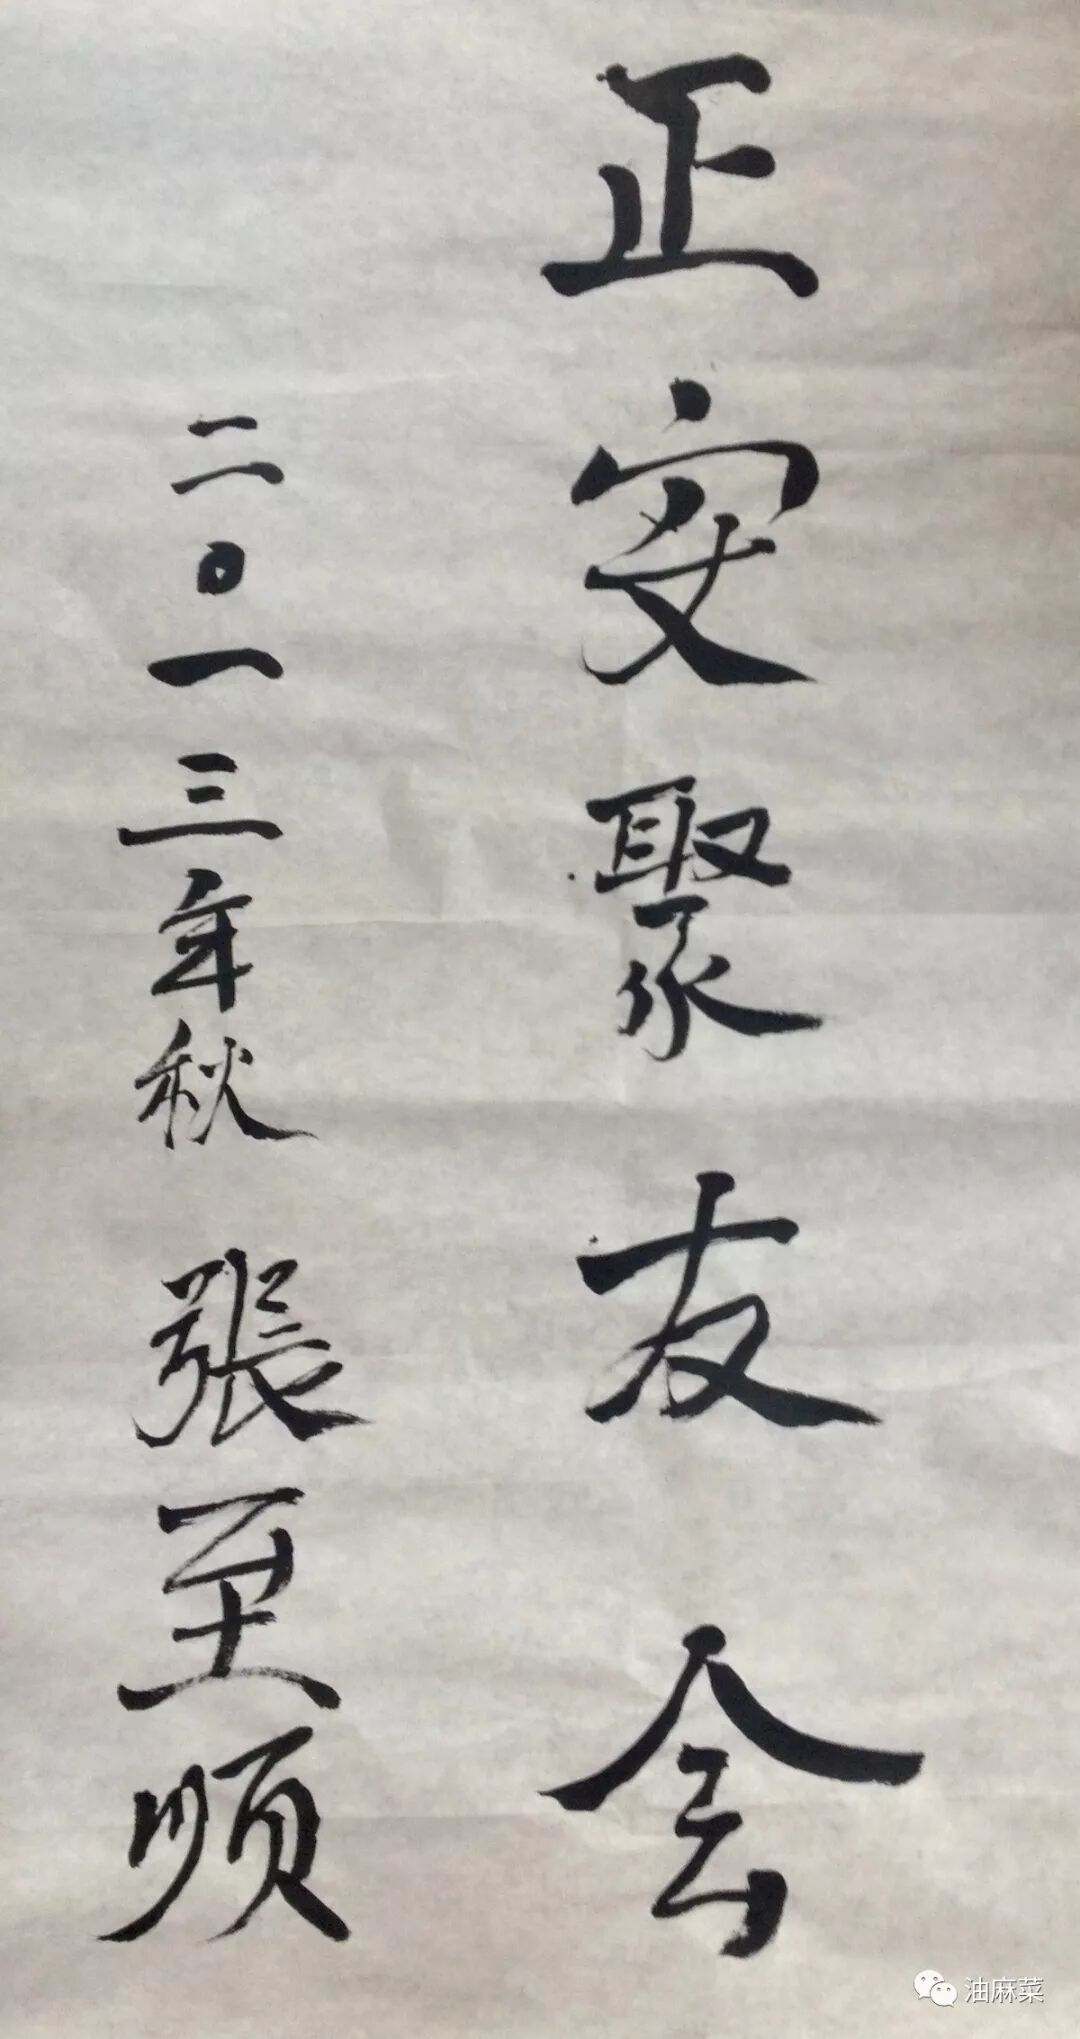 正安聚友会
二〇一三年秋 張至順
油麻菜